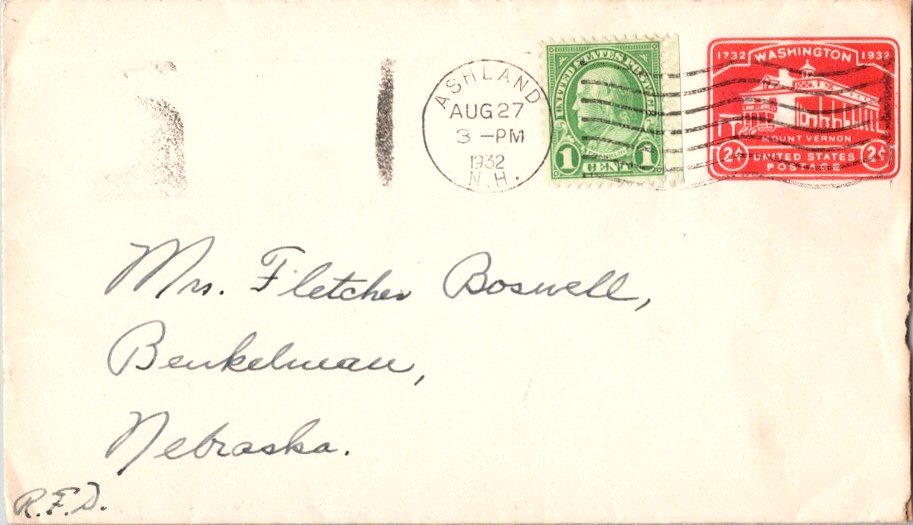 ASHLAND
AUG 27
3 -PM
1932
N.H.
UNITED STATES POSTAGE
1 CENT 1
1732 WASHINGTON 1932
MOUNT VERNON
2¢ UNITED STATES 2¢
POSTAGE
Mrs. Fletcher Boswell,
Benkelman,
Nebraska.
R.F.D.